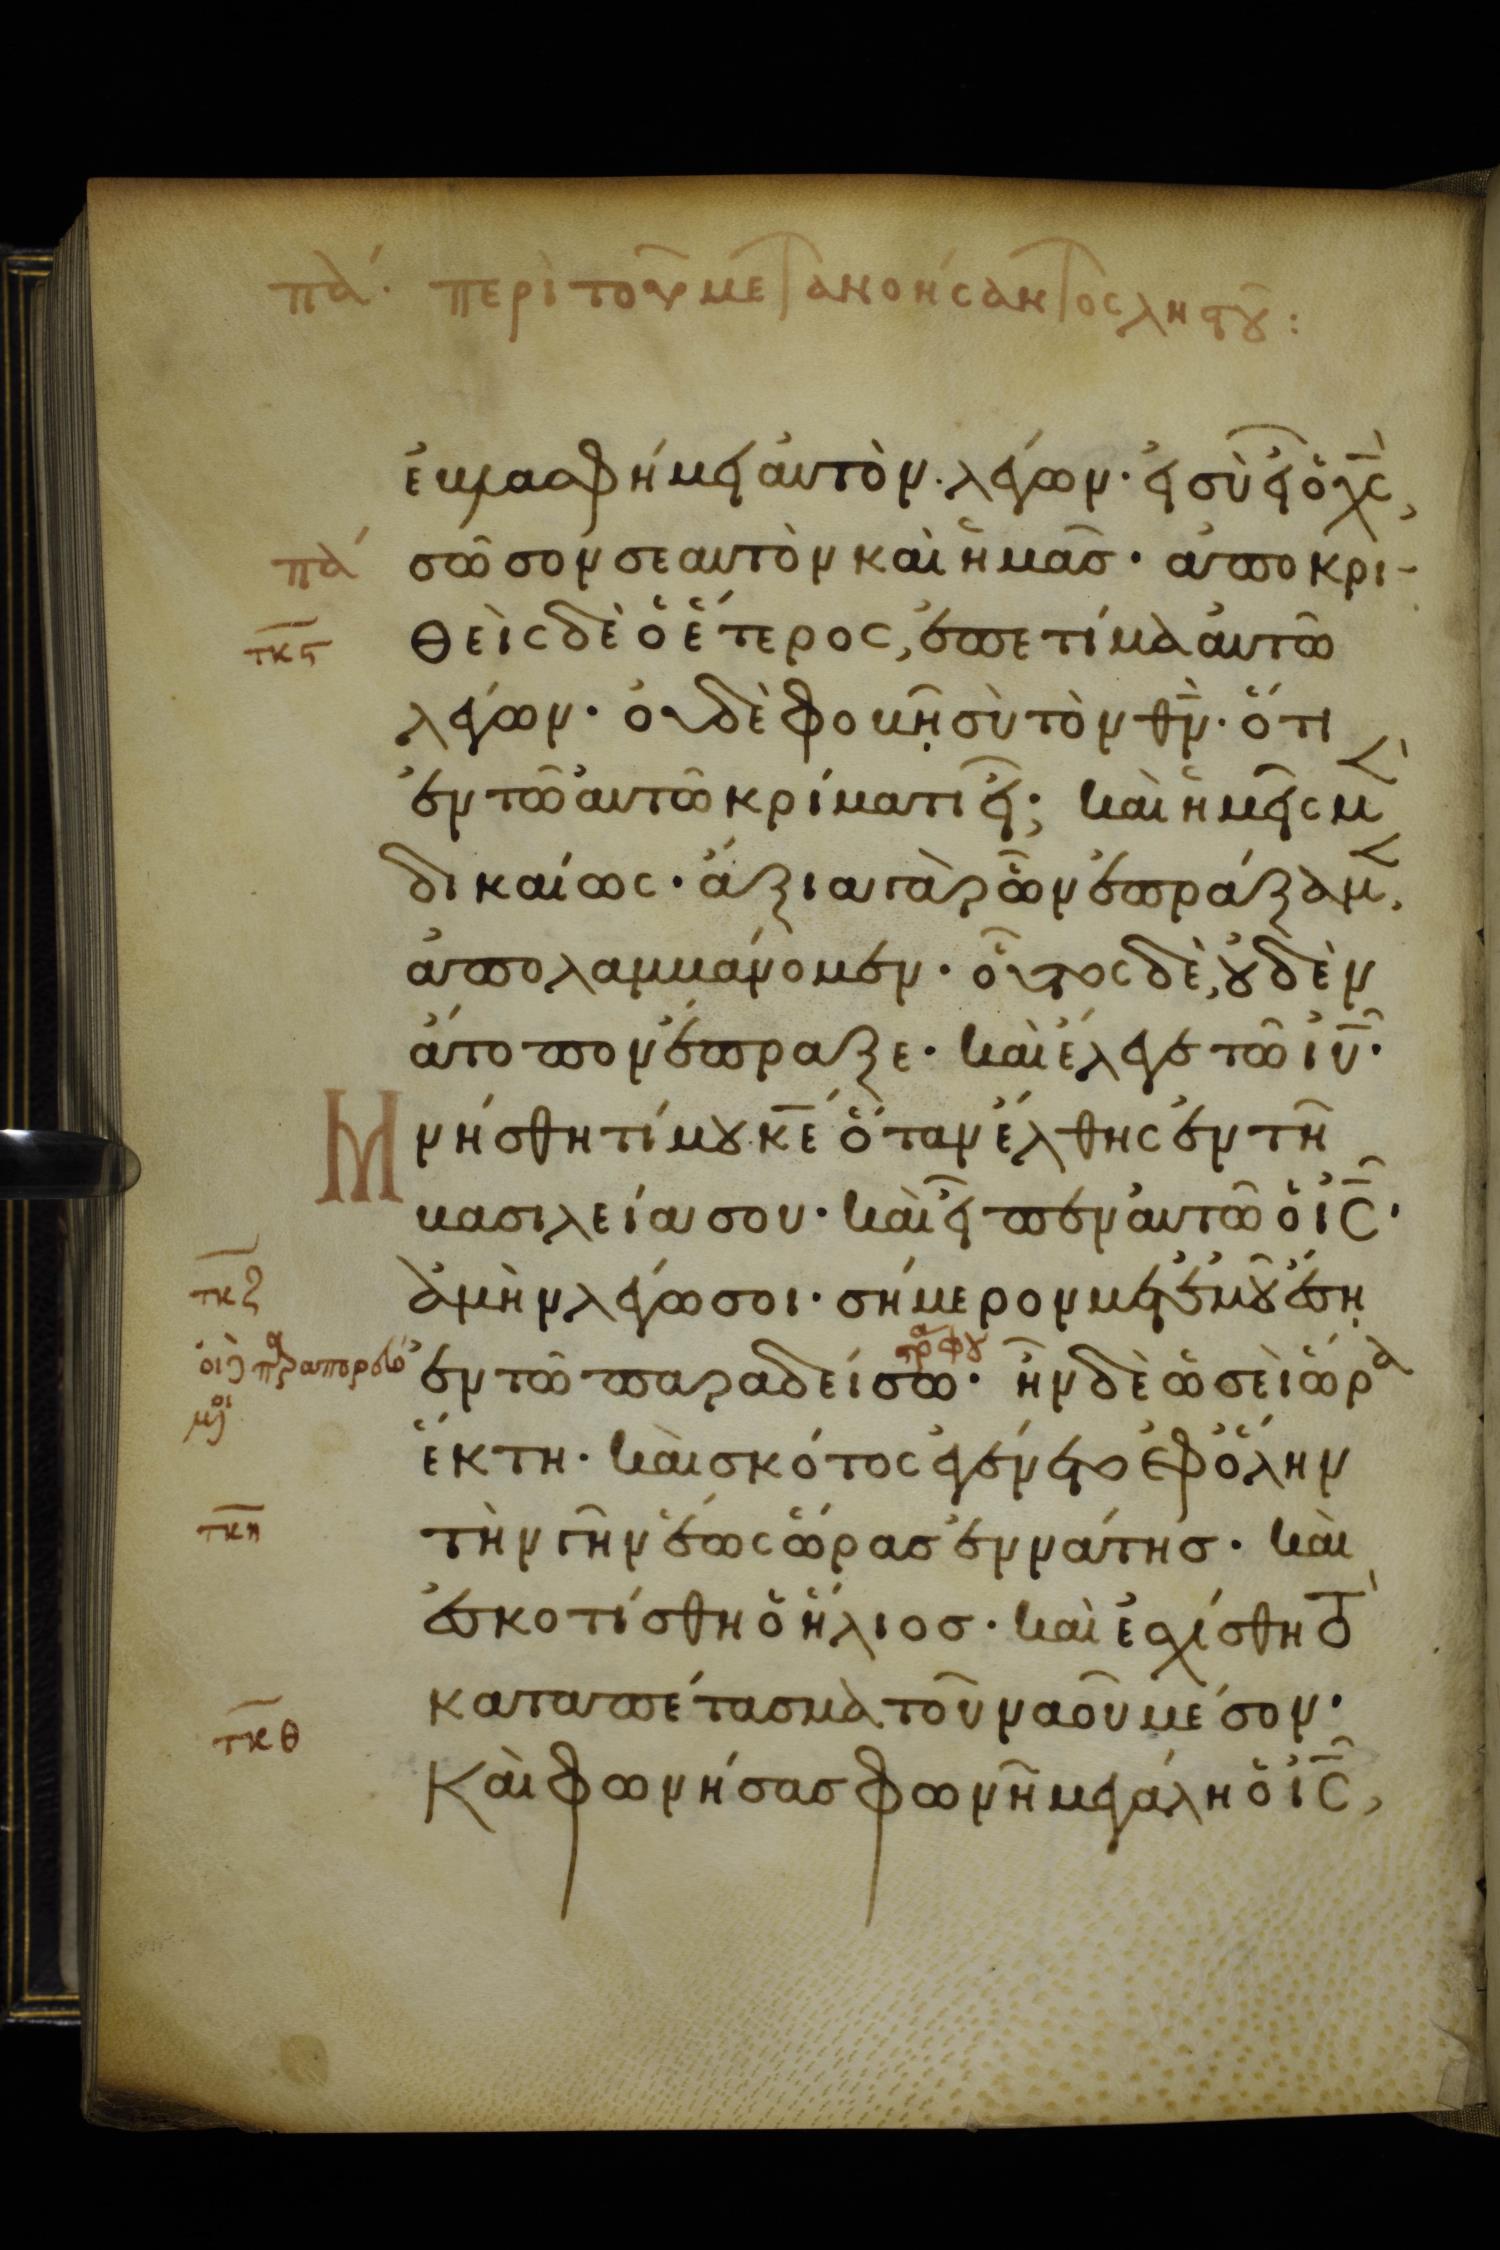 πα· περὶ τοῦ μετανοήσαντος ληστοῦ:
ἐβλασφήμει αὐτὸν· λέγων· εἰ σὺ εἶ ὁ χς,
πα σῶσον σεαυτὸν καὶ ἡμᾶς· ἀποκρι-
τκϛ θεὶς δὲ ὁ ἕτερος, ἐπετίμα αὐτῶ
λέγων· οὐδὲ φοβῆ σὺ τὸν θν· ὅτι
ἐν τῶ αὐτῶ κρίματι εἶ; καὶ ἡμεῖς μὲν
δικαίως· ἄξια γὰρ ὧν ἐπράξαμεν,
ἀπολαμβάνομεν· οὗτος δὲ, οὐδὲν
ἄτοπον ἔπραξε· καὶ ἔλεγε τῶ ιυ·
Μνήσθητί μου κε ὅταν ἔλθης ἐν τῆ
βασιλεία σου· καὶ εἶπεν αὐτῶ ὁ ις·
τκζ ἀμὴν λέγω σοι· σήμερον μετ' ἐμοῦ ἔση
ἐν τῶ παραδείσω· ἦν δὲ ὡσεὶ ὥρα
ἕκτη· καὶ σκότος ἐγένετο ἐφ' ὅλην
τκη τὴν γῆν ἕως ὥρας ἐννάτης· καὶ
ἐσκοτίσθη ὁ ἥλιος· καὶ ἐσχίσθη τὸ
τκθ καταπέτασμα τοῦ ναοῦ μέσον·
Καὶ φωνήσας φωνῆ μεγάλη ὁ ις,